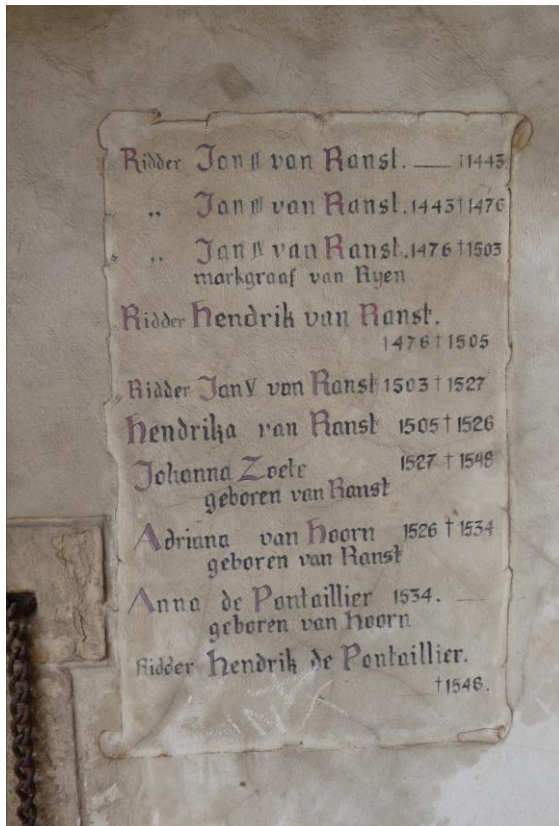 Ridder Jan II van Ranst. — †1443
„ Jan III van Ranst. 1443†1476
„ Jan IV van Ranst. 1476†1503
markgraaf van Ryen
Ridder Hendrik van Ranst.
1476†1505
Ridder Jan V van Ranst 1503†1527
Hendrika van Ranst 1505†1526
Johanna Zoete 1527†1548
geboren van Ranst
Adriana van Hoorn 1526†1534
geboren van Ranst
Anna de Pontaillier 1534. —
geboren van Hoorn
Ridder Hendrik de Pontaillier.
†1548.